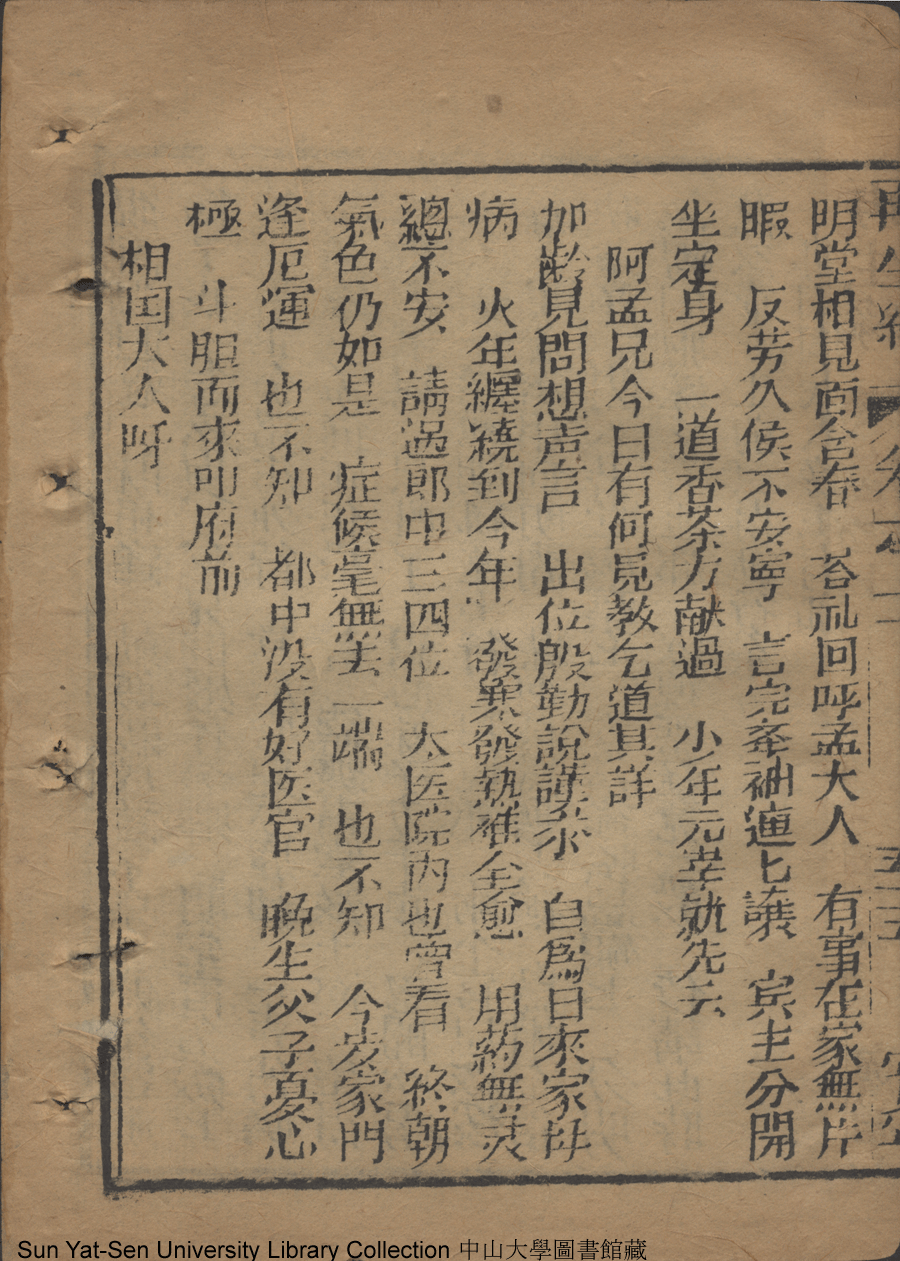 再生緣 卷之十
五十五
明堂相見面含春　荅礼回呼孟大人　有事在家無片
暇　反劳久侯不安寧　言完牽袖連匕讓　宾主分開
坐定身　一道香茶方献過　少年元宰就先云
阿孟兄今日有何見教乞道其詳
加齡見問想声言　出位殷勤說謹示　自為日來家母
病　火年纒繞到今年　發寒發熱难全愈　用药無灵
總不安　請過郎中三四位　太医院內也曾看　終朝
氣色仍如是　症候毫無去一端　也不知　今岁家門
逢厄運　也不知　都中没有好医官　晚生父子憂心
極　斗胆而來叩府前
相国大人呀
Sun Yat-Sen University Library Collection 中山大學圖書館藏